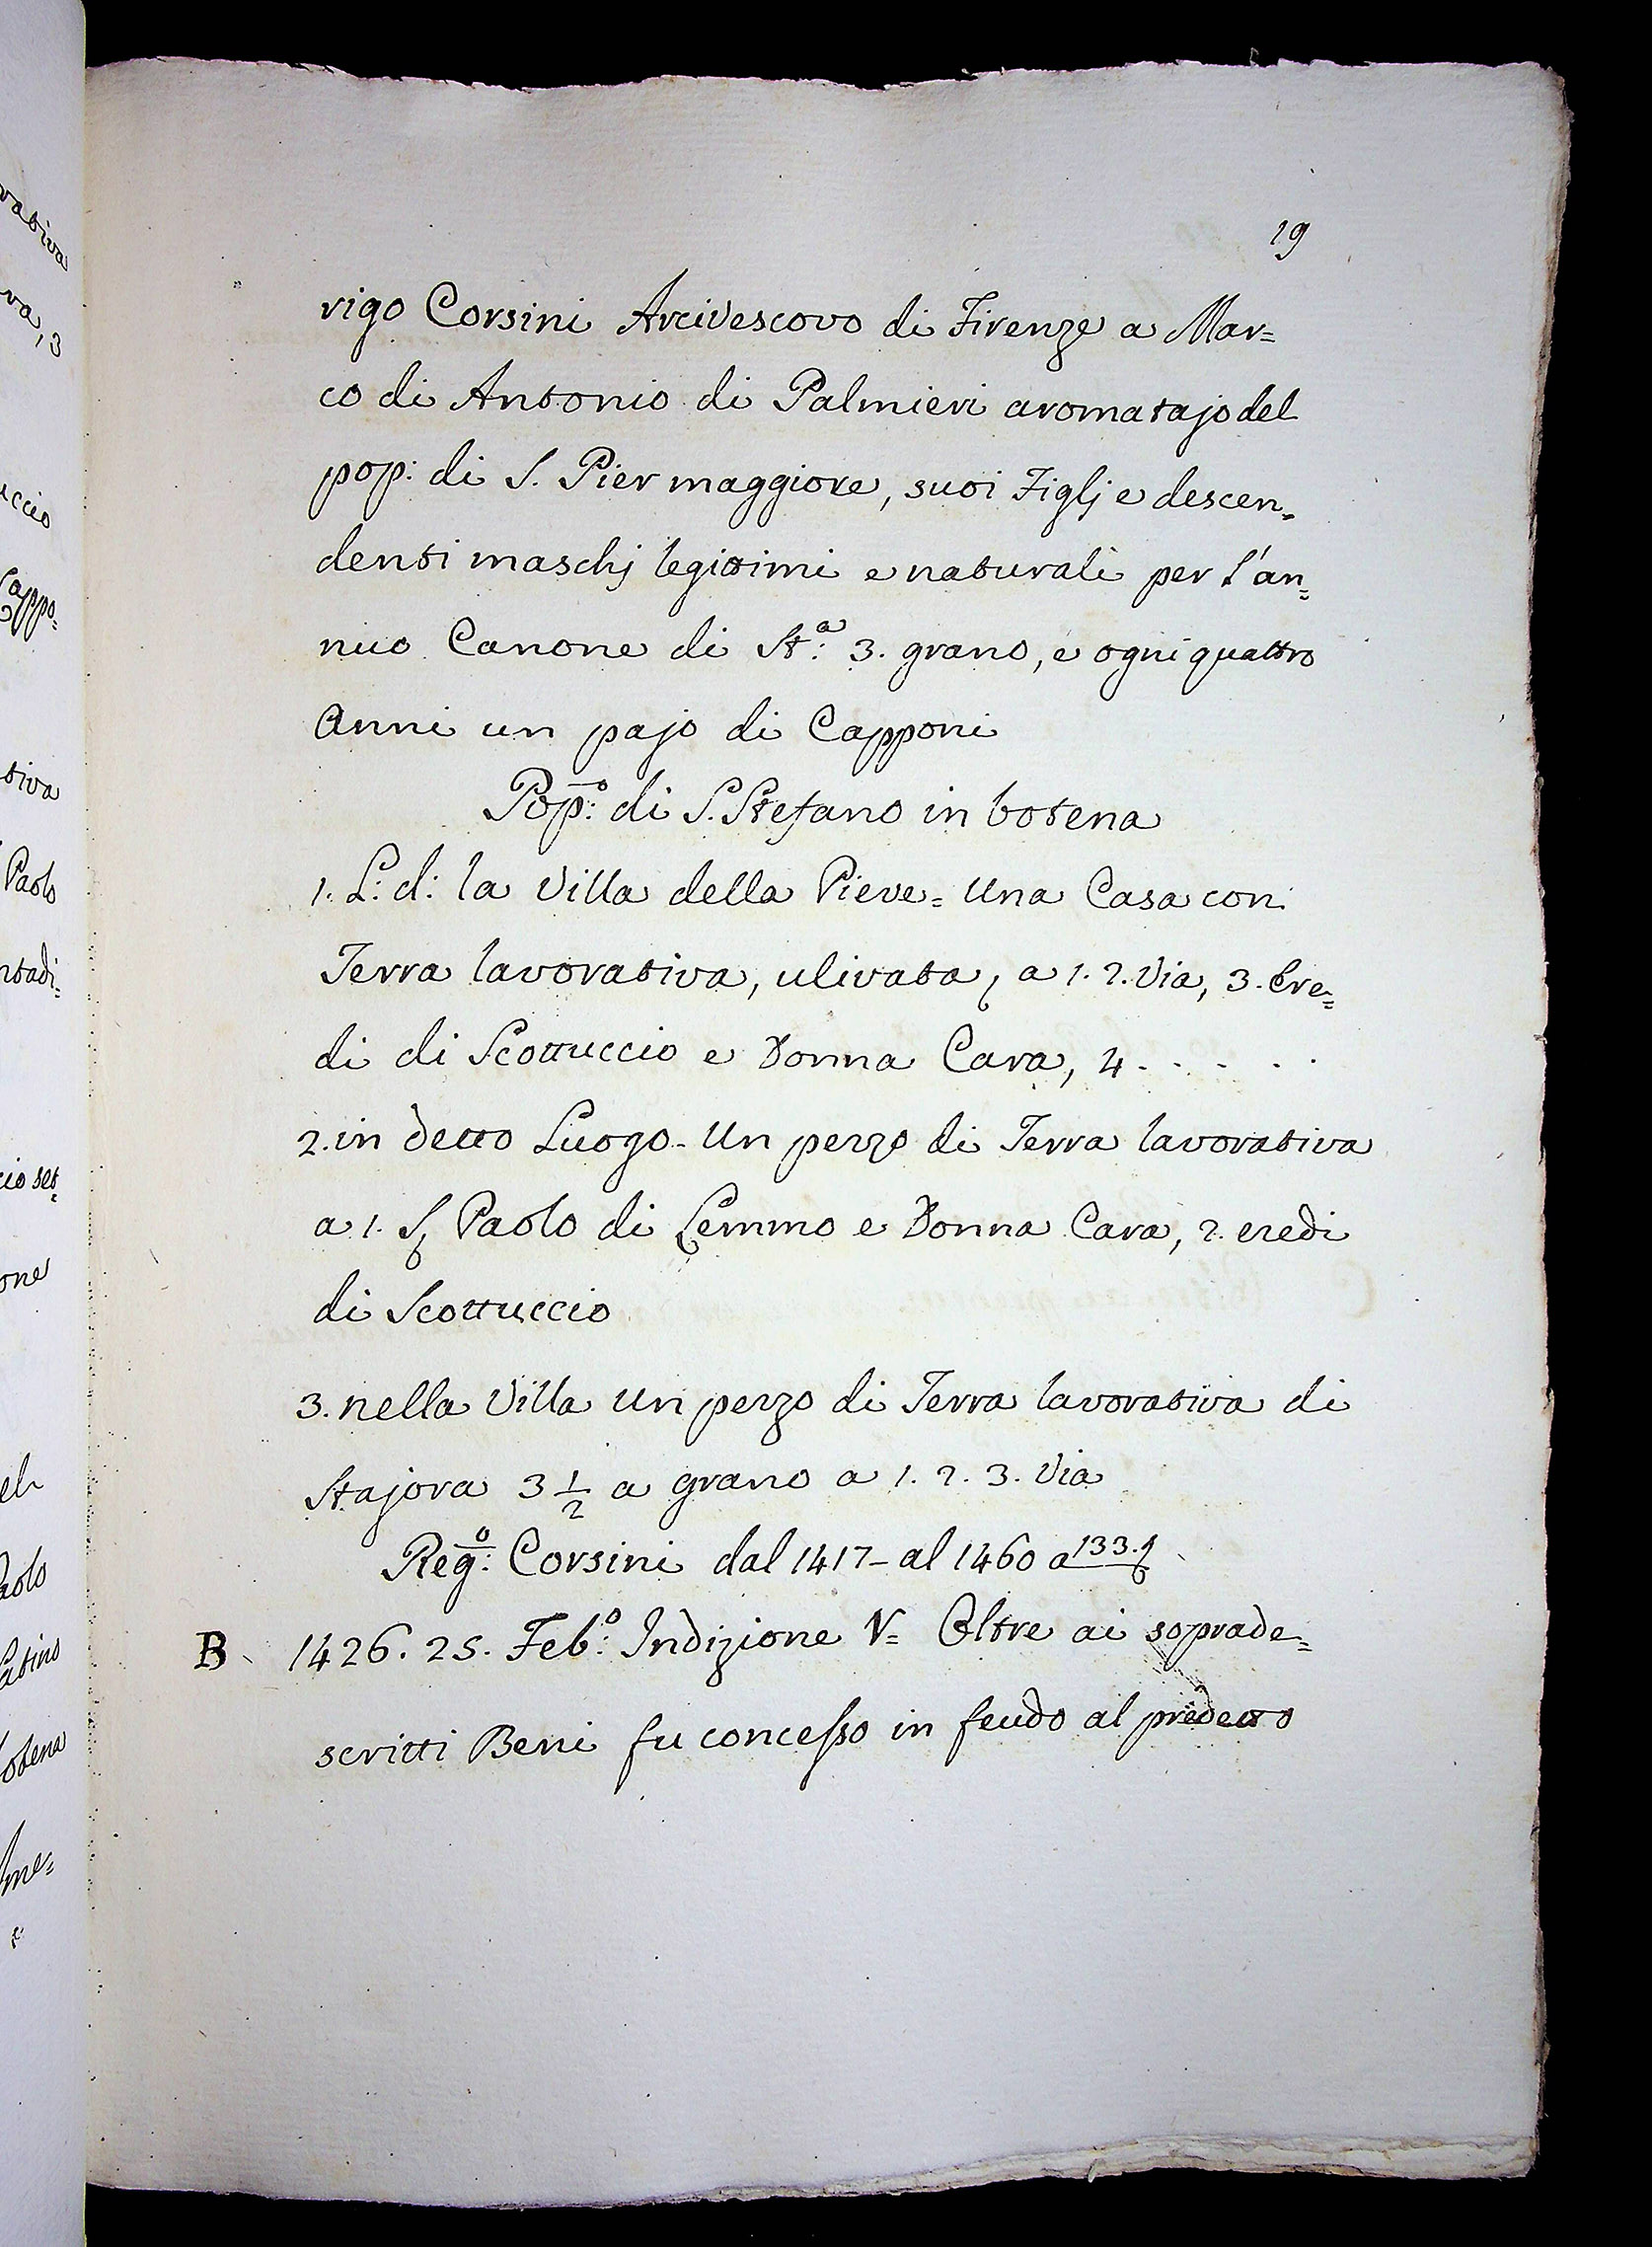 19
rigo Corsini Arcivescovo di Firenze a Mar=
co di Antonio di Palmieri aromatajo del
pop: di S. Pier maggiore, suoi Figlj e descen=
denti maschj legittimi e naturali per l'an=
nuo Canone di St:ª 3. grano, e ogni quattro
Anni un pajo di Capponi
Pop:º di S. Stefano in botena
1. L: d: la Villa della Pieve= Una Casa con
Terra lavorativa, ulivata, a 1. 2. Via, 3. Ere=
di di Scottuccio e Donna Cara, 4. . . . .
2. in detto Luogo- Un pezzo di Terra lavorativa
a 1. S. Paolo di Lemmo e Donna Cara, 2. eredi
di Scottuccio
3. nella Villa un pezzo di Terra lavorativa di
Stajora 3 1/2 a grano a 1. 2. 3. Via
Reg:º Corsini dal 1417- al 1460 a 133.
B 1426. 25. Feb:º Indizione V= Oltre ai soprade=
scritti Beni fu concesso in feudo al predetto